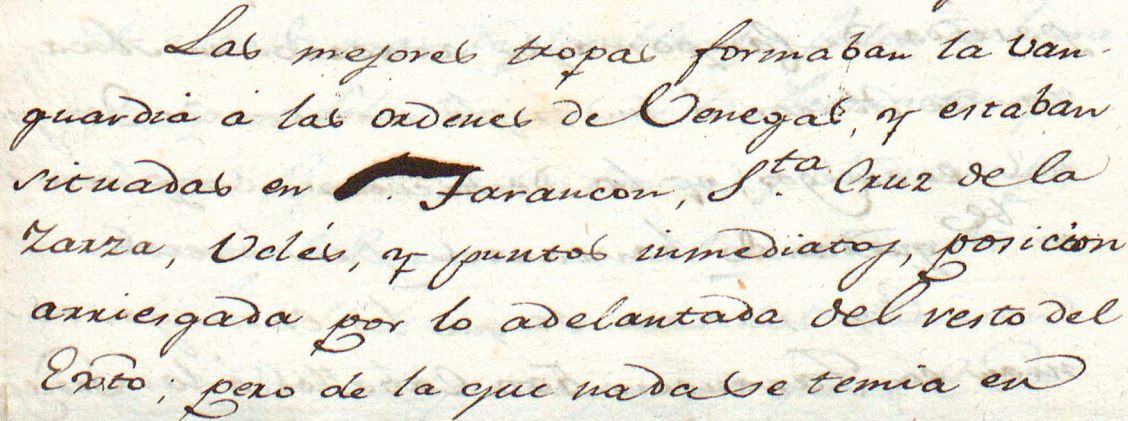 Las mejores tropas formaban la van-
guardia á las ordenes de Venegas, y estaban
situadas en Tarancon, S.ta Cruz de la
Zarza, Uclés, y puntos inmediatos, posicion
arriesgada por lo adelantada del resto del
Exto; pero de la que nada se temia en